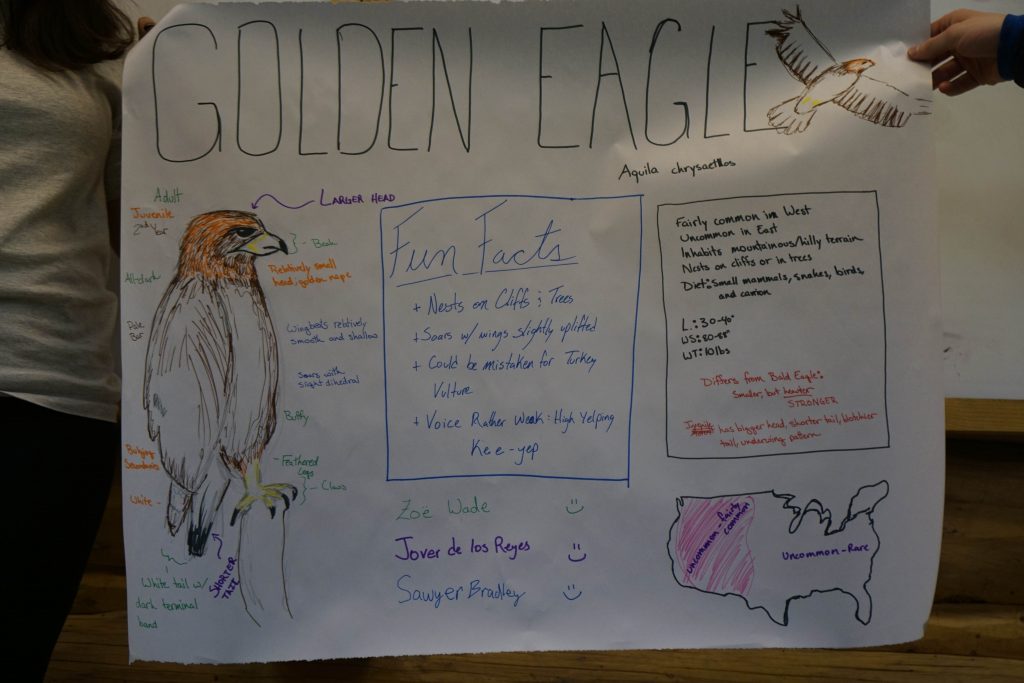 GOLDEN EAGLE
Aquila chrysaetlos
Adult
Juvenile
2nd yar
LARGER HEAD
Beak
Relatively small
head, golden nape
All-dark
Pale
Bar
Wingbeats relatively
smooth and shallow
Soars with
slight dihedral
Buffy
Bulging
Secondaries
Feathered
Legs
Claws
White
SHORTER
TAIL
White tail w/
dark terminal
band
Fun Facts
+ Nests on Cliffs & Trees
+ Soars w/ wings slightly uplifted
+ Could be mistaken for Turkey
Vulture
+ Voice Rather Weak: High Yelping
Kee-yep
Zoë Wade
Jover de los Reyes
Sawyer Bradley
Fairly common in West
Uncommon in East
Inhabits mountainous/hilly terrain
Nests on cliffs or in trees
Diet: Small mammals, snakes, birds,
and carrion
L: 30-40"
WS: 80-88"
WT: 10lbs
Differs from Bald Eagle:
Smaller, but heavier
STRONGER
Juvenile has bigger head, shorter tail, blotchier
tail, underwing pattern
uncommon-fairly
common
Uncommon-Rare